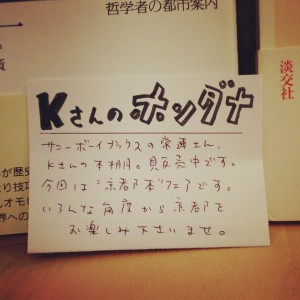 哲学者の都市案内
淡交社
Kさんのホンダナ
サニーボーイブックスの常連さん、
Kさんの本棚。貝反売中です。
今回は京都本フェアです。
いろんな角度から京都を
お楽しみ下さいませ。